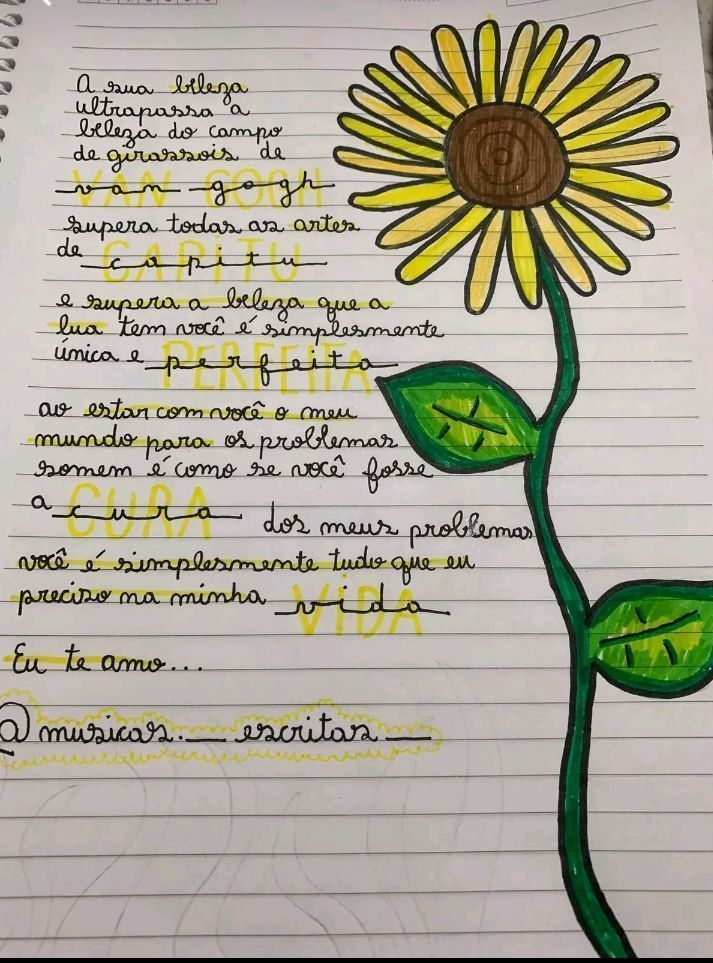 A sua beleza
ultrapassa a
beleza do campo
de girassois de
VAN GOGH
van gogh
supera todas as artes
de CAPITU
capitu
e supera a beleza que a
lua tem você é simplesmente
única e PERFEITA
perfeita
ao estar com você o meu
mundo para os problemas
somem é como se você fosse
a CURA
cura dos meus problemas
você é simplesmente tudo que eu
preciso na minha VIDA
vida
Eu te amo...
@musicas.__escritas__